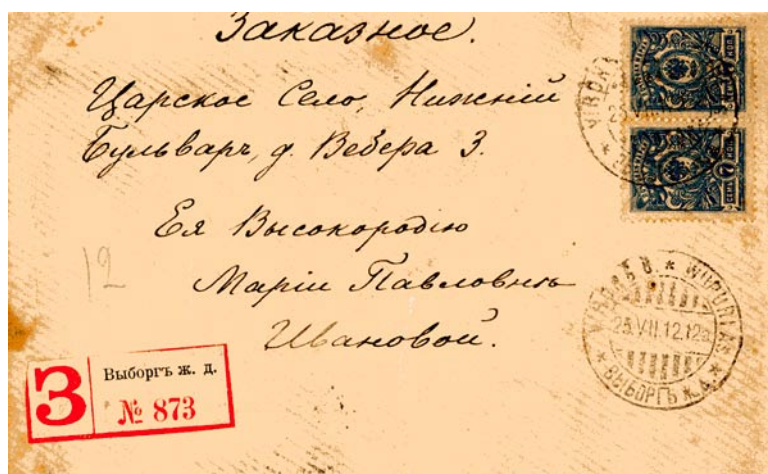 Заказное.
Царское Село, Нижній
Бульваръ, д. Вебера 3.
Ея Высокородію
Маріи Павловнѣ
Ивановой.
12
З
Выборгъ ж. д.
№ 873
7
СЕМЬ КОП
25.VII.12.12
ВЫБОРГЪ Ж. Д.